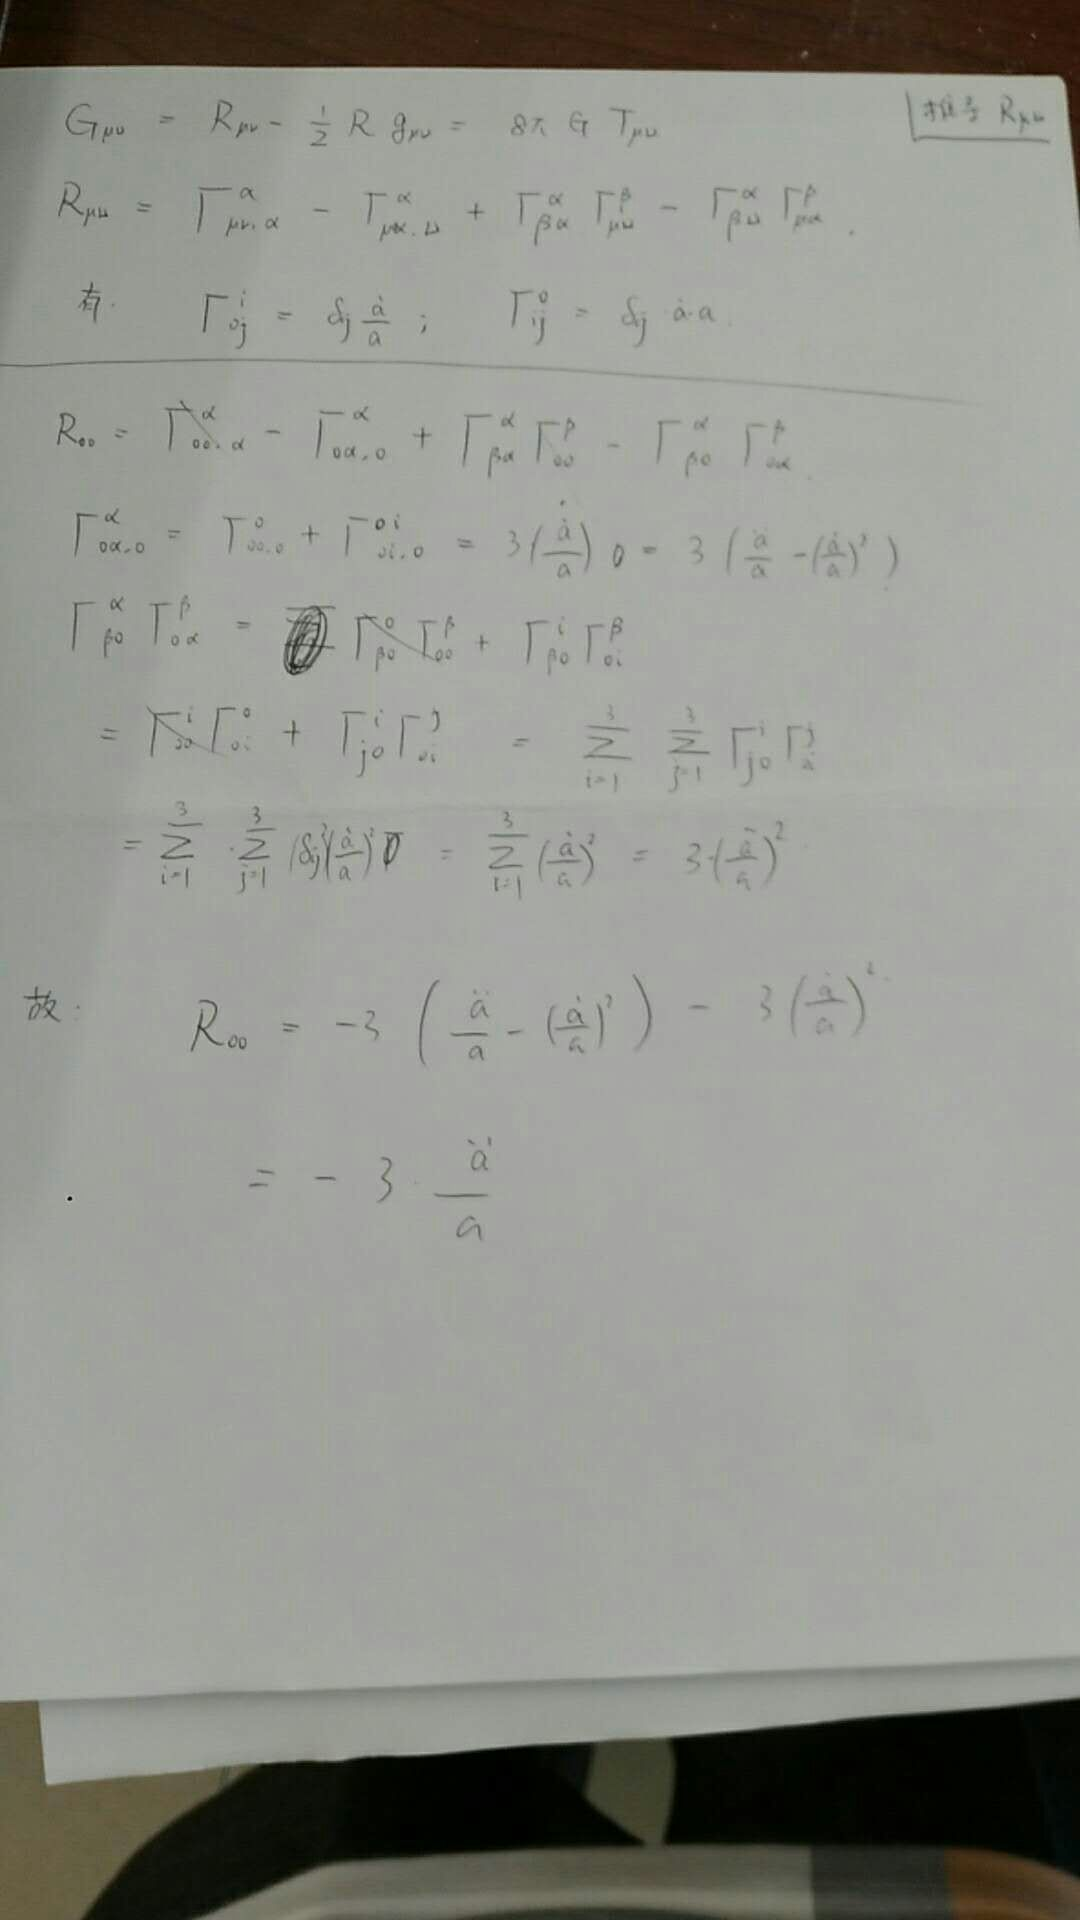 G_{μν} = R_{μν} - \frac{1}{2} R g_{μν} = 8π G T_{μν}
推导 R_{μν}
R_{μν} = Γ^{α}_{μν,α} - Γ^{α}_{μα,ν} + Γ^{α}_{βα} Γ^{β}_{μν} - Γ^{α}_{βν} Γ^{β}_{μα} .
有. Γ^{i}_{0j} = δ_{ij} \frac{\dot{a}}{a} ; Γ^{0}_{ij} = δ_{ij} \dot{a}·a .
R_{00} = Γ^{α}_{00,α} - Γ^{α}_{0α,0} + Γ^{α}_{βα} Γ^{β}_{00} - Γ^{α}_{β0} Γ^{β}_{0α} .
Γ^{α}_{0α,0} = Γ^{0}_{00,0} + Γ^{0i}_{0i,0} = 3 (\frac{\dot{a}}{a})_{,0} = 3 ( \frac{\ddot{a}}{a} - (\frac{\dot{a}}{a})^{2} )
Γ^{α}_{β0} Γ^{β}_{0α} = Γ^{0}_{β0} Γ^{β}_{00} + Γ^{i}_{β0} Γ^{β}_{0i}
= Γ^{i}_{00} Γ^{0}_{0i} + Γ^{i}_{j0} Γ^{j}_{0i} = \sum_{i=1}^{3} \sum_{j=1}^{3} Γ^{i}_{j0} Γ^{j}_{0i}
= \sum_{i=1}^{3} · \sum_{j=1}^{3} (δ_{ij})^{2} (\frac{\dot{a}}{a})^{2} = \sum_{i=1}^{3} (\frac{\dot{a}}{a})^{2} = 3·(\frac{\dot{a}}{a})^{2}
故: R_{00} = -3 ( \frac{\ddot{a}}{a} - (\frac{\dot{a}}{a})^{2} ) - 3 (\frac{\dot{a}}{a})^{2}
= - 3 · \frac{\ddot{a}}{a}